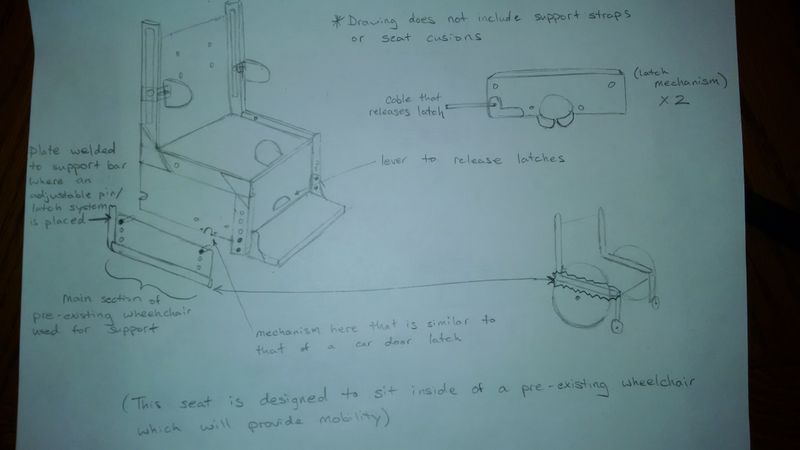 * Drawing does not include support straps
or seat cusions
(latch
mechanism)
x 2
Cable that
releases latch
Plate welded
to support bar
where an
adjustable pin/
latch system
is placed
lever to release latches
Main section of
pre-existing wheehchair
used for support
mechanism here that is similar to
that of a car door latch
(This seat is designed to sit inside of a pre-existing wheelchair
which will provide mobility)